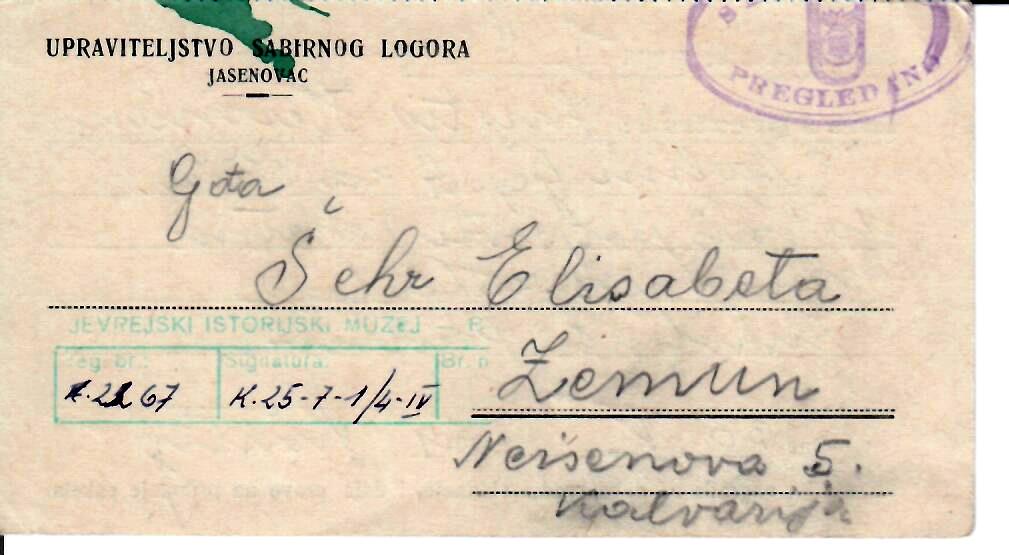 UPRAVITELJSTVO SABIRNOG LOGORA
JASENOVAC
PREGLEDANO
Gđa
Šehr Elisabeta
JEVREJSKI ISTORIJSKI MUZEJ —
Reg. br.: Signatura: Br.
K.25-7-1/4-IV
Zemun
5.
Kalvarija